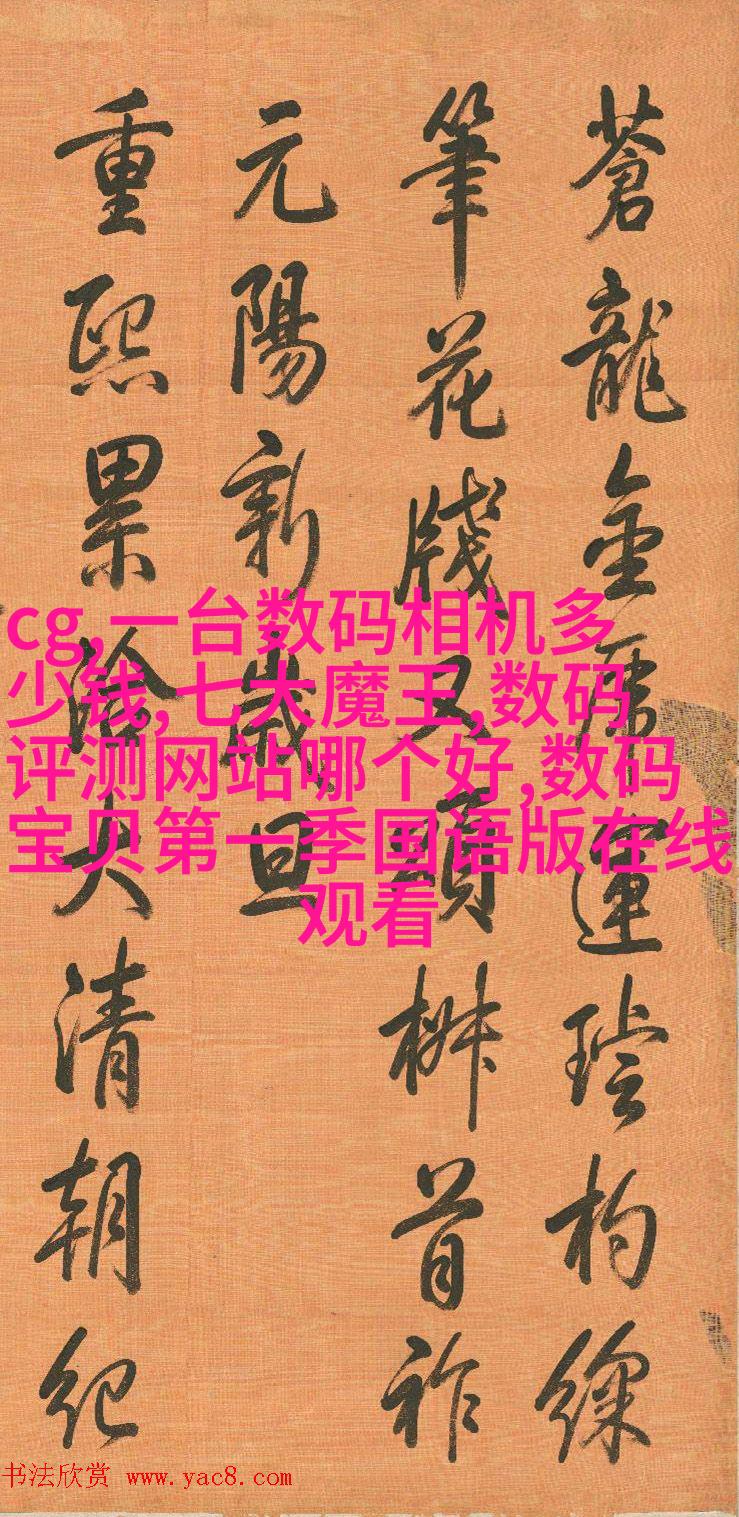 蒼龍金運杓
筆花牋又首祚
元陽新歲旦
重熙累洽大清朝紀
cg,一台数码相机多
少钱,七大魔王,数码
评测网站哪个好,数码
宝贝第一季国语版在线
观看
书法欣赏 www.yac8.com